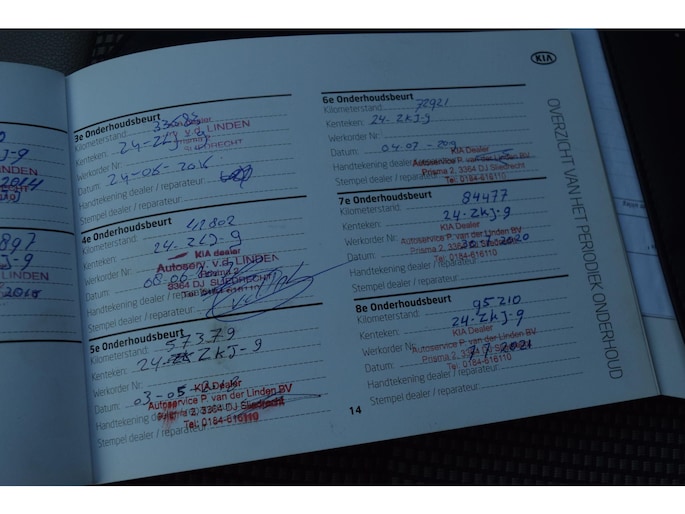 897
KJ-9
LINDEN
2016
3e Onderhoudsbeurt
Kilometerstand:
Kenteken: 24-ZKJ-9
Werkorder Nr:
Datum: 24-05-2016
Handtekening dealer / reparateur:
Stempel dealer / reparateur:
v.d. LINDEN
SLIEDRECHT
4e Onderhoudsbeurt
Kilometerstand: 41802
Kenteken: 24-ZKJ-9
Werkorder Nr:
Datum: 08-06-
Handtekening dealer / reparateur:
Stempel dealer / reparateur:
KIA dealer
Autoserv. v.d. LINDEN
Prisma 2
3364 DJ SLIEDRECHT
Tel: 0184-616110
5e Onderhoudsbeurt
Kilometerstand: 57379
Kenteken: 24-ZKJ-9
Werkorder Nr:
Datum: 03-05-
Handtekening dealer / reparateur:
Stempel dealer / reparateur:
KIA Dealer
Autoservice P. van der Linden BV
Prisma 2, 3364 DJ Sliedrecht
Tel: 0184-616110
KIA
6e Onderhoudsbeurt
Kilometerstand: 72921
Kenteken: 24-ZKJ-9
Werkorder Nr:
Datum: 04-07-2019
Handtekening dealer / reparateur:
Stempel dealer / reparateur:
KIA Dealer
Autoservice P. van der Linden BV
Prisma 2, 3364 DJ Sliedrecht
Tel: 0184-616110
7e Onderhoudsbeurt
Kilometerstand: 84477
Kenteken: 24-ZKJ-9
Werkorder Nr:
Datum: 2020
Handtekening dealer / reparateur:
Stempel dealer / reparateur:
KIA Dealer
Autoservice P. van der Linden BV
Prisma 2, 3364 DJ Sliedrecht
Tel: 0184-616110
8e Onderhoudsbeurt
Kilometerstand: 95210
Kenteken: 24-ZKJ-9
Werkorder Nr:
Datum: 7-7-2021
Handtekening dealer / reparateur:
Stempel dealer / reparateur:
KIA Dealer
Autoservice P. van der Linden BV
Prisma 2, 3364 DJ Sliedrecht
Tel: 0184-616110
OVERZICHT VAN HET PERIODIEK ONDERHOUD
14